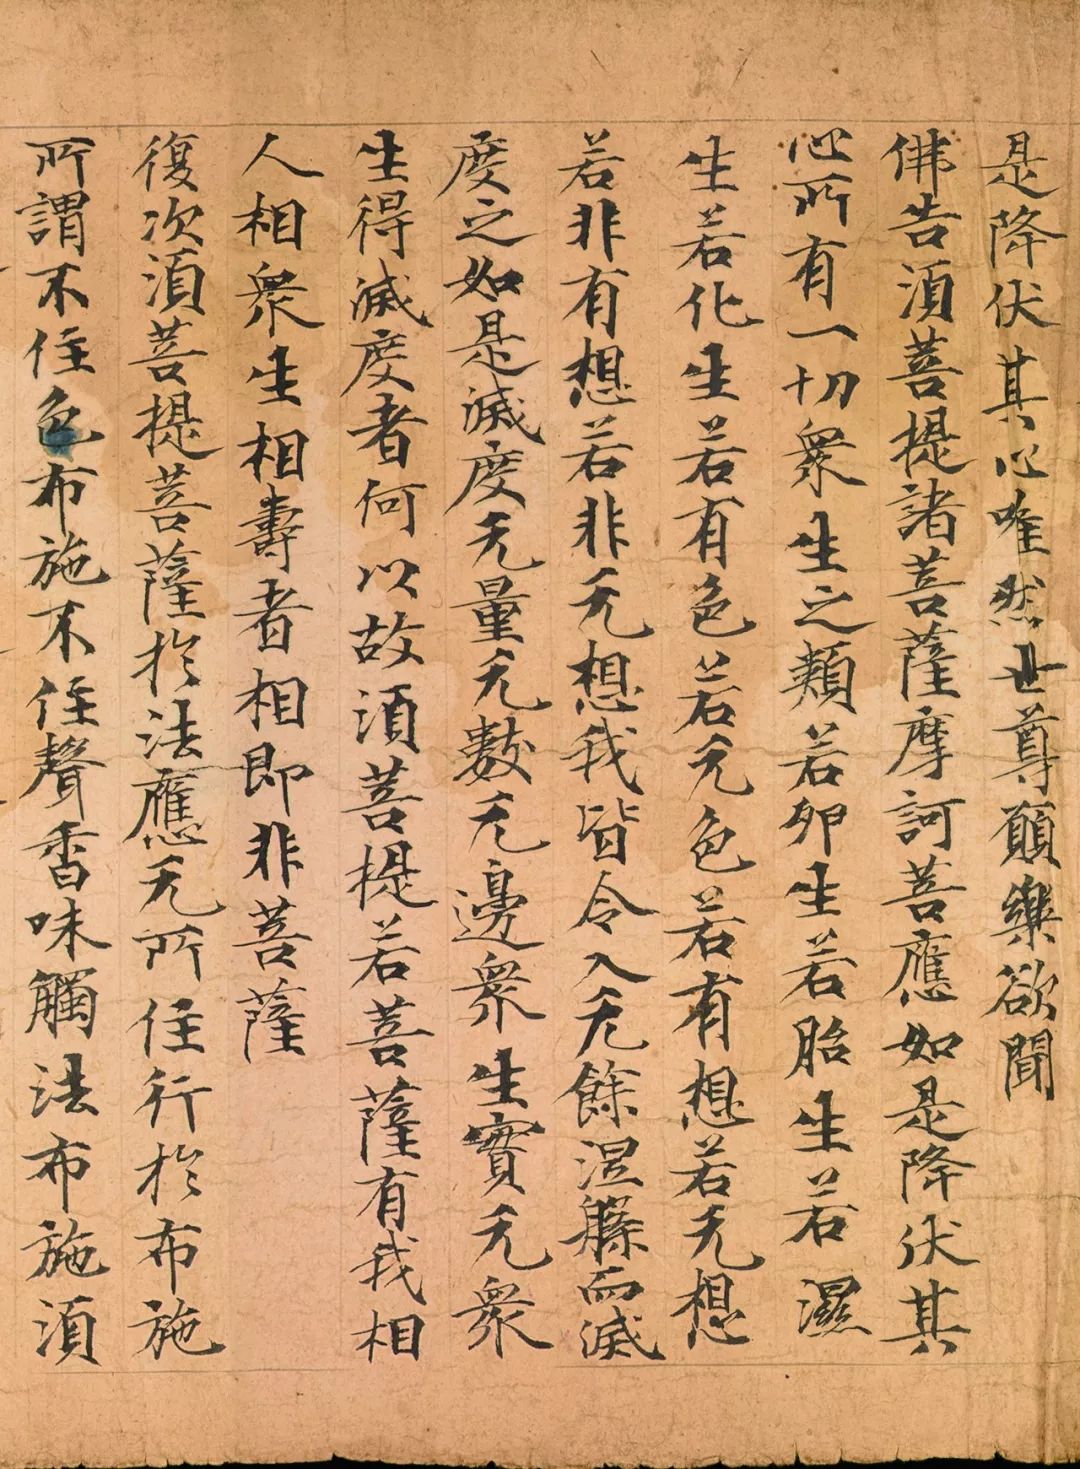 是降伏其心唯然世尊願樂欲聞
佛告湏菩提諸菩薩摩訶菩應如是降伏其
心所有一切衆生之類若卵生若胎生若濕
生若化生若有色若无色若有想若无想
若非有想若非无想我皆令入无餘涅槃而滅
度之如是滅度无量无數无邊衆生實无衆
生得滅度者何以故湏菩提若菩薩有我相
人相衆生相壽者相即非菩薩
復次湏菩提菩薩於法應无所住行於布施
所謂不住色布施不住聲香味觸法布施湏